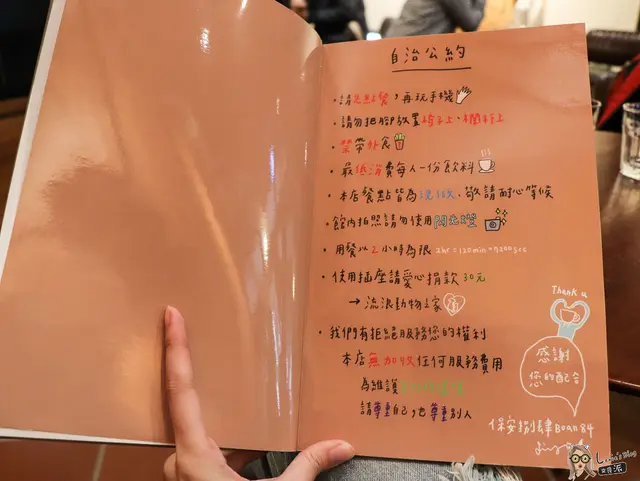 自治公約
·請先點餐，再玩手機
·請勿把腳放置椅子上、欄杆上
·禁帶外食
·最低消費每人一份飲料
·本店餐點皆為現做，敬請耐心等候
·館內拍照請勿使用閃光燈
·用餐以2小時為限 2hr=120min=7200sec
·使用插座請愛心捐款30元
→流浪動物之家
·我們有拒絕服務您的權利
本店無加收任何服務費用
為維護
請尊重自己，也尊重別人
Thank u
感謝
您的配合
保安捌肆Boan84
Livia's Blog